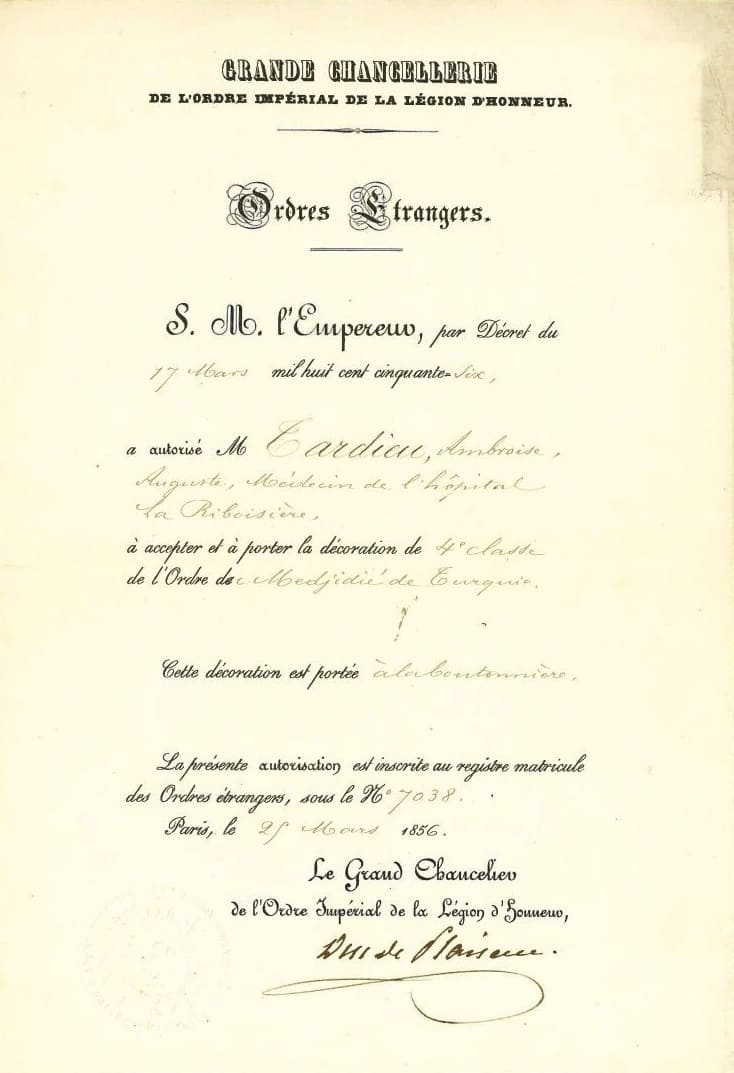 GRANDE CHANCELLERIE
DE L'ORDRE IMPÉRIAL DE LA LÉGION D'HONNEUR.
Ordres Etrangers.
S. M. l'Empereur, par Décret du
17 Mars mil huit cent cinquante=six,
a autorisé M Tardieu, Ambroise,
Auguste, Médecin de l'hôpital
La Riboisière,
à accepter et à porter la décoration de 4e classe
de l'Ordre de Medjidié de Turquie.
Cette décoration est portée à la boutonnière.
La présente autorisation est inscrite au registre matricule
des Ordres étrangers, sous le No 7038.
Paris, le 25 Mars 1856.
Le Grand Chancelier
de l'Ordre Impérial de la Légion d'Honneur,
Duc de Plaisance.